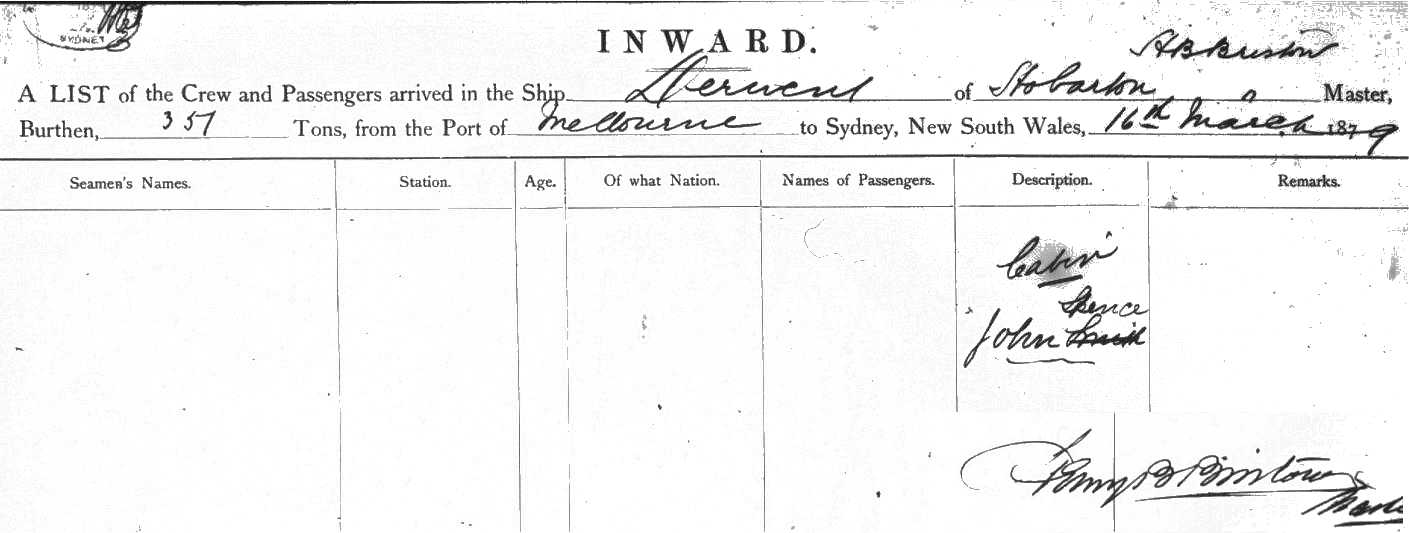 SYDNEY
INWARD.
A LIST of the Crew and Passengers arrived in the Ship Derwent of Hobarton, Master,
Burthen, 357 Tons, from the Port of Melbourne to Sydney, New South Wales, 16th March 1879
Seamen's Names. Station. Age. Of what Nation. Names of Passengers. Description. Remarks.
Cabin
Spence
John Smith
Master